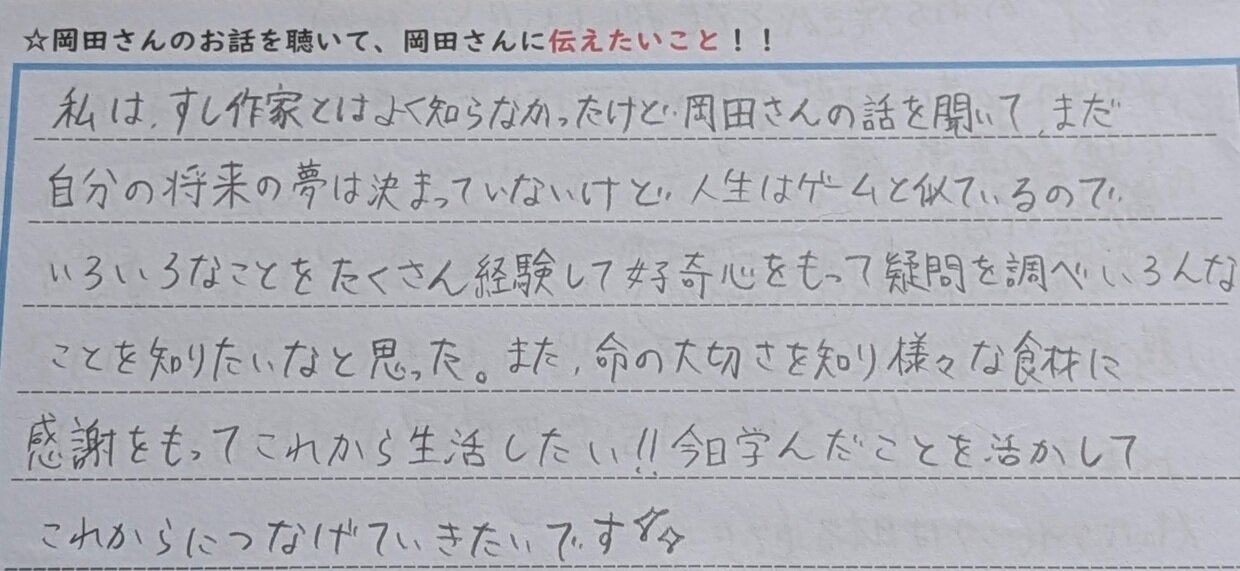 ☆岡田さんのお話を聴いて、岡田さんに伝えたいこと！！
私は、すし作家とはよく知らなかったけど岡田さんの話を聞いて、まだ
自分の将来の夢は決まっていないけど、人生はゲームと似ているので
いろいろなことをたくさん経験して好奇心をもって疑問を調べいろんな
ことを知りたいなと思った。また、命の大切さを知り様々な食材に
感謝をもってこれから生活したい!!今日学んだことを活かして
これからにつなげていきたいです☆☆